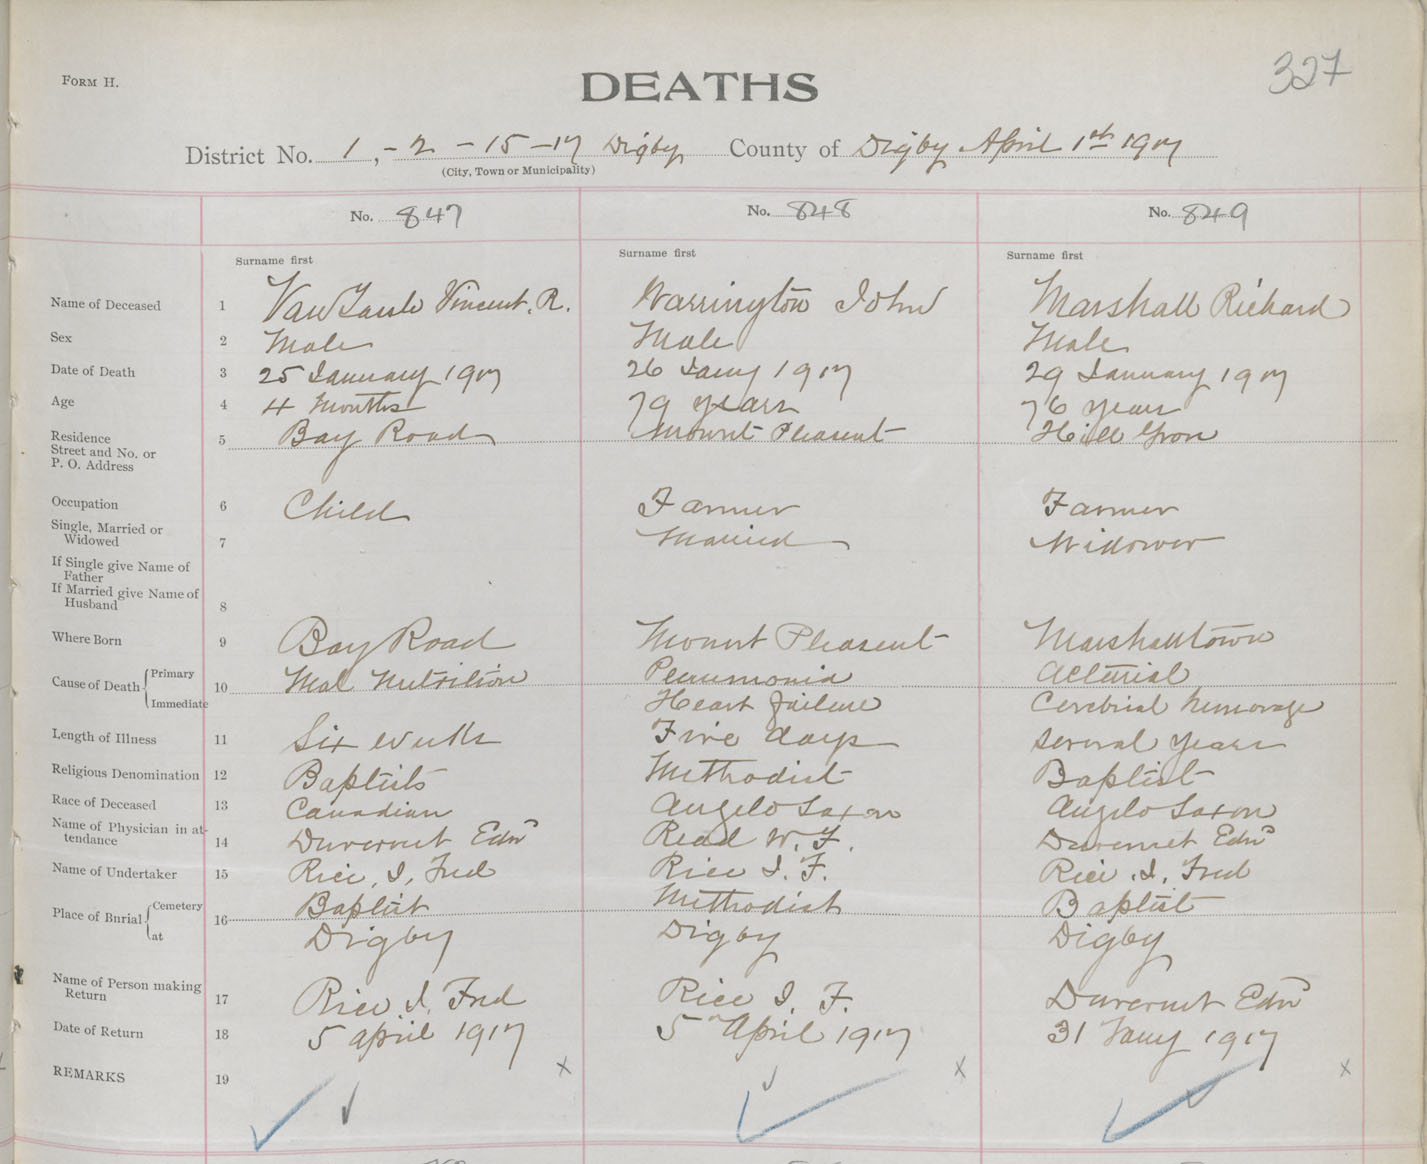 327
Form H.
DEATHS
District No. 1, - 2 - 15 - 17 Digby County of Digby April 1st 1917
(City, Town or Municipality)
No. 847 No. 848 No. 849
Surname first Surname first Surname first
Name of Deceased 1 Vincent. R. Warrington John Marshall Richard
Sex 2 Male Male Male
Date of Death 3 25 January 1917 26 Jany 1917 29 January 1917
Age 4 4 Months 79 years 76 years
Residence 5 Bay Road Mount Pleasent Hill Grove
Street and No. or
P. O. Address
Occupation 6 Child Farmer Farmer
Single, Married or
Widowed 7 Married Widower
If Single give Name of
Father
If Married give Name of
Husband 8
Where Born 9 Bay Road Mount Pleasent Marshalltown
Cause of Death Primary 10 Mal Nutrition Pneumonia
Immediate Heart failure Cerebrial hemorage
Length of Illness 11 Six weeks Five days several years
Religious Denomination 12 Baptists Methodist Baptist
Race of Deceased 13 Canadian Angelo Saxon Angelo Saxon
Name of Physician in at-
tendance 14 Duvernet Edwd Read W. F. Duvernet Edwd
Name of Undertaker 15 Rice, I, Fred Rice I. F. Rice, I, Fred
Place of Burial Cemetery 16 Baptist Methodist Baptist
at Digby Digby Digby
Name of Person making
Return 17 Rice, I, Fred Rice I. F. Duvernet Edwd
Date of Return 18 5 April 1917 5 April 1917 31 Jany 1917
REMARKS 19 x x x